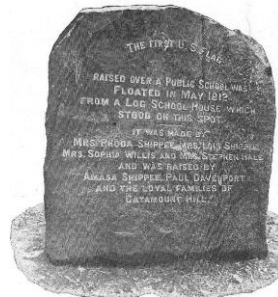 THE FIRST U.S. FLAG
RAISED OVER A PUBLIC SCHOOL WAS
FLOATED IN MAY 1812
FROM A LOG SCHOOL HOUSE WHICH
STOOD ON THIS SPOT.
IT WAS MADE BY
MRS. RHODA SHIPPEE, MRS. LOIS SHIPPEE,
MRS. SOPHIA WILLIS AND MRS. STEPHEN HALE
AND WAS RAISED BY
AMASA SHIPPEE, PAUL DAVENPORT
AND THE LOYAL FAMILIES OF
CATAMOUNT HILL.